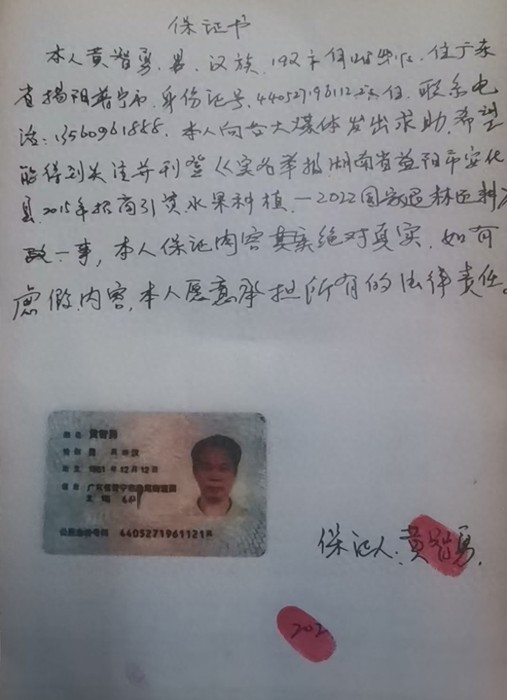 保证书
本人黄智勇,男,汉族,住广东
省揭阳普宁市,身份证号,联系电
话:13560961888.本人向各大媒体发出求助,希望
能得到关注并刊登《实名举报湖南省益阳市安化
县2015年招商引资水果种植,一2022国家退林还耕
政一事,本人保证内容其实绝对真实,如有
虚假内容,本人愿意承担所有的法律责任。
姓名 黄智勇
性别 男 民族 汉
出生 12月12日
住址 广东省普宁市
公民身份号码 4405271961121
保证人:黄智勇
202